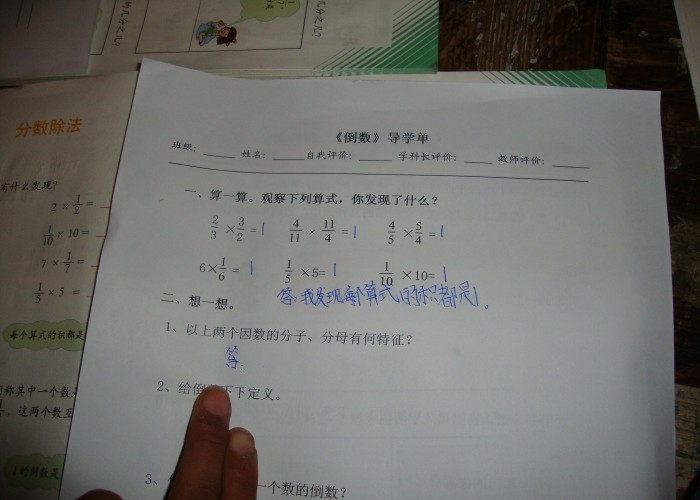 几分之几?
分数除法
有什么发现?
2 × 1/2 =
1/10 × 10 =
7 × 1/7 =
1/5 × 5 =
每个算式的积都是
称其中一个数
,这两个数互
1的倒数是
《倒数》导学单
班级:_____ 姓名:_____ 自我评价:_____ 学科长评价:_____ 教师评价:_____
一、算一算。观察下列算式,你发现了什么?
2/3 × 3/2 = 1 4/11 × 11/4 = 1 4/5 × 5/4 = 1
6 × 1/6 = 1 1/5 ×5= 1 1/10 ×10= 1
答:我发现每个算式的积都是1。
二、想一想。
1、以上两个因数的分子、分母有何特征?
答:
2、给倒 下下定义。
3、 一个数的倒数?